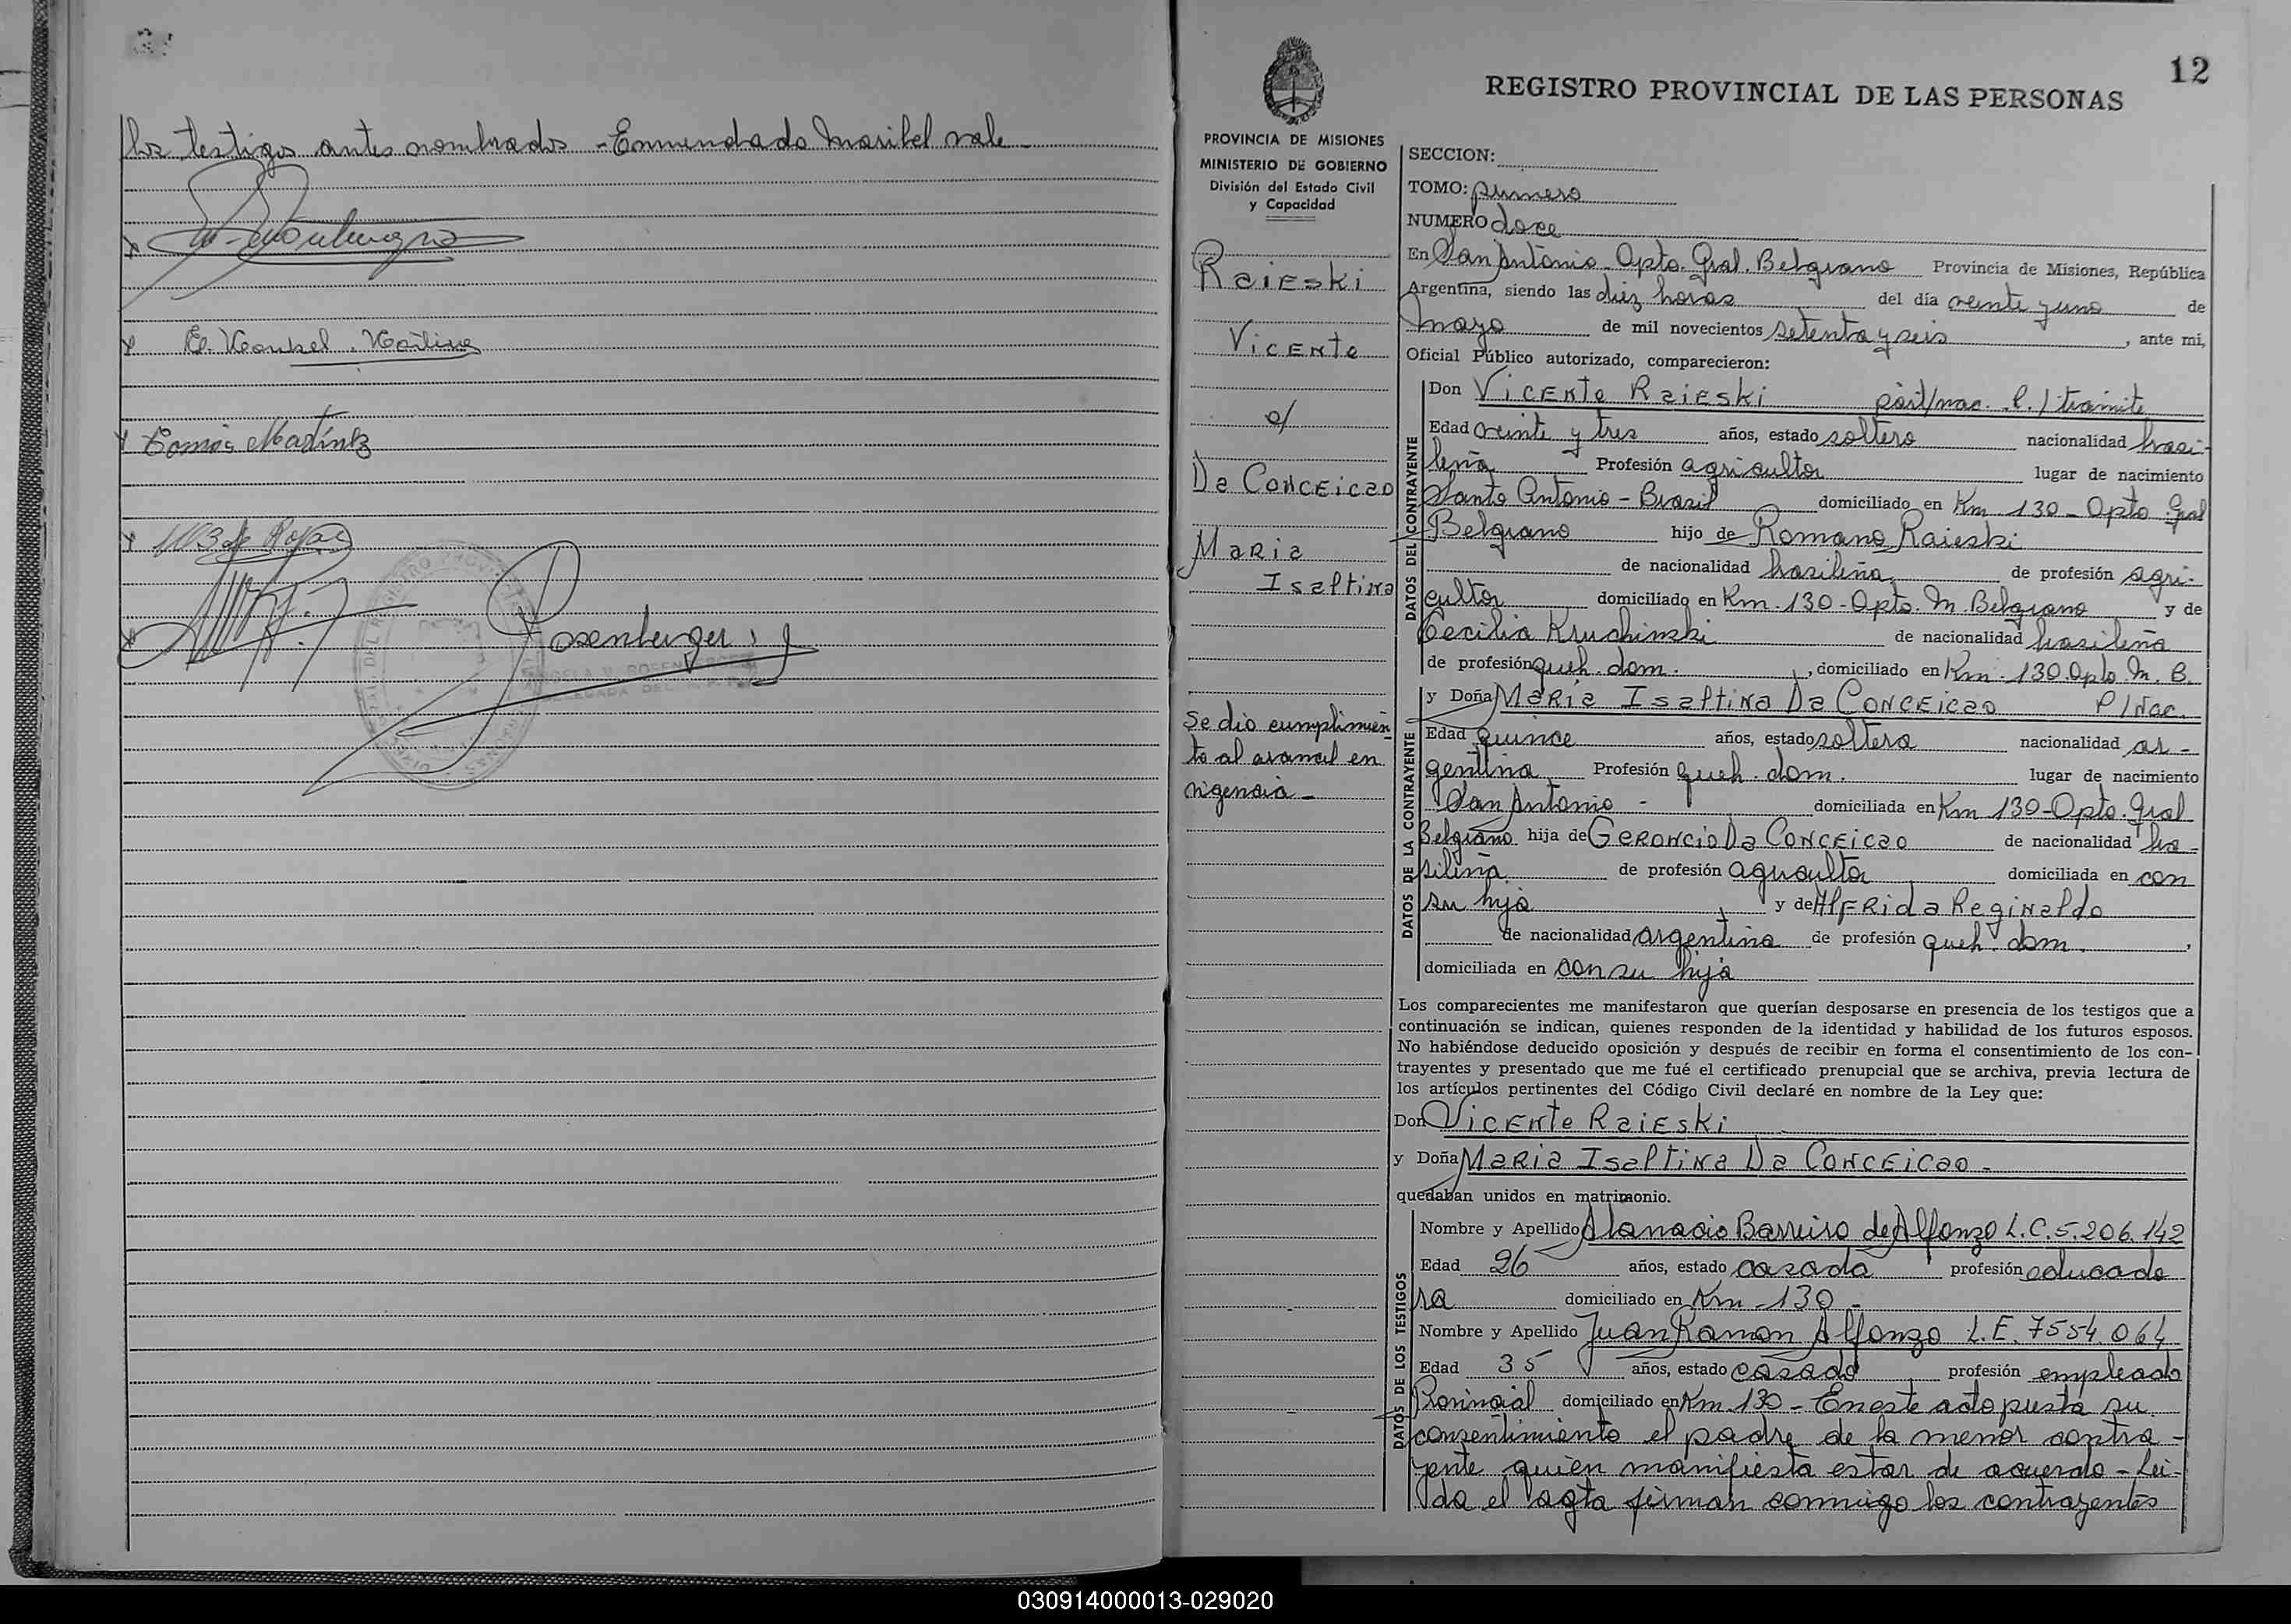 los testigos antes nombrados - Enmendado Maribel vale -
Tomás Martínez
Rosenberger
12
REGISTRO PROVINCIAL DE LAS PERSONAS
PROVINCIA DE MISIONES
MINISTERIO DE GOBIERNO
División del Estado Civil
y Capacidad
Raieski
Vicente
c/
Da Conceicao
Maria
Isaltina
Se dio cumplimien
to al arancel en
vigencia -
SECCION:
TOMO: primero
NUMERO doce
En San Antonio - Dpto. Gral. Belgrano Provincia de Misiones, República
Argentina, siendo las diez horas del día veinte y uno de
mayo de mil novecientos setenta y seis, ante mi,
Oficial Público autorizado, comparecieron:
DATOS DEL CONTRAYENTE
Don Vicente Raieski part/nac. e./ tramite
Edad veinte y tres años, estado soltero nacionalidad brasi-
leña Profesión agricultor lugar de nacimiento
Santo Antonio - Brasil domiciliado en Km 130 - Dpto. Gral
Belgrano hijo de Romano Raieski
de nacionalidad brasileña de profesión agri-
cultor domiciliado en Km. 130 - Dpto. M. Belgrano y de
Cecilia Kruchinski de nacionalidad brasileña
de profesión queh. dom., domiciliado en Km. 130. Dpto. M. B.
DATOS DE LA CONTRAYENTE
y Doña Maria Isaltina Da Conceicao P/Nac.
Edad quince años, estado soltera nacionalidad ar-
gentina Profesión queh. dom. lugar de nacimiento
San Antonio - domiciliada en Km 130 - Dpto. Gral
Belgrano hija de Geroncio Da Conceicao de nacionalidad bra-
sileña de profesión agricultor domiciliada en con
su hija y de Alfrida Reginaldo
de nacionalidad argentina de profesión queh. dom.,
domiciliada en con su hija
Los comparecientes me manifestaron que querían desposarse en presencia de los testigos que a
continuación se indican, quienes responden de la identidad y habilidad de los futuros esposos.
No habiéndose deducido oposición y después de recibir en forma el consentimiento de los con-
trayentes y presentado que me fué el certificado prenupcial que se archiva, previa lectura de
los artículos pertinentes del Código Civil declaré en nombre de la Ley que:
Don Vicente Raieski
y Doña Maria Isaltina Da Conceicao -
quedaban unidos en matrimonio.
DATOS DE LOS TESTIGOS
Nombre y Apellido Atanacio Barreiro de Alfonzo L.C. 5.206.142
Edad 26 años, estado casada profesión educado
ra domiciliado en Km - 130 -
Nombre y Apellido Juan Ramon Alfonzo L.E. 7554.064
Edad 35 años, estado casado profesión empleado
Provincial domiciliado en Km. 130 - En este acto presta su
consentimiento el padre de la menor contra-
yente quien manifiesta estar de acuerdo - Leí-
da el agta firman conmigo los contrayentes
030914000013-029020